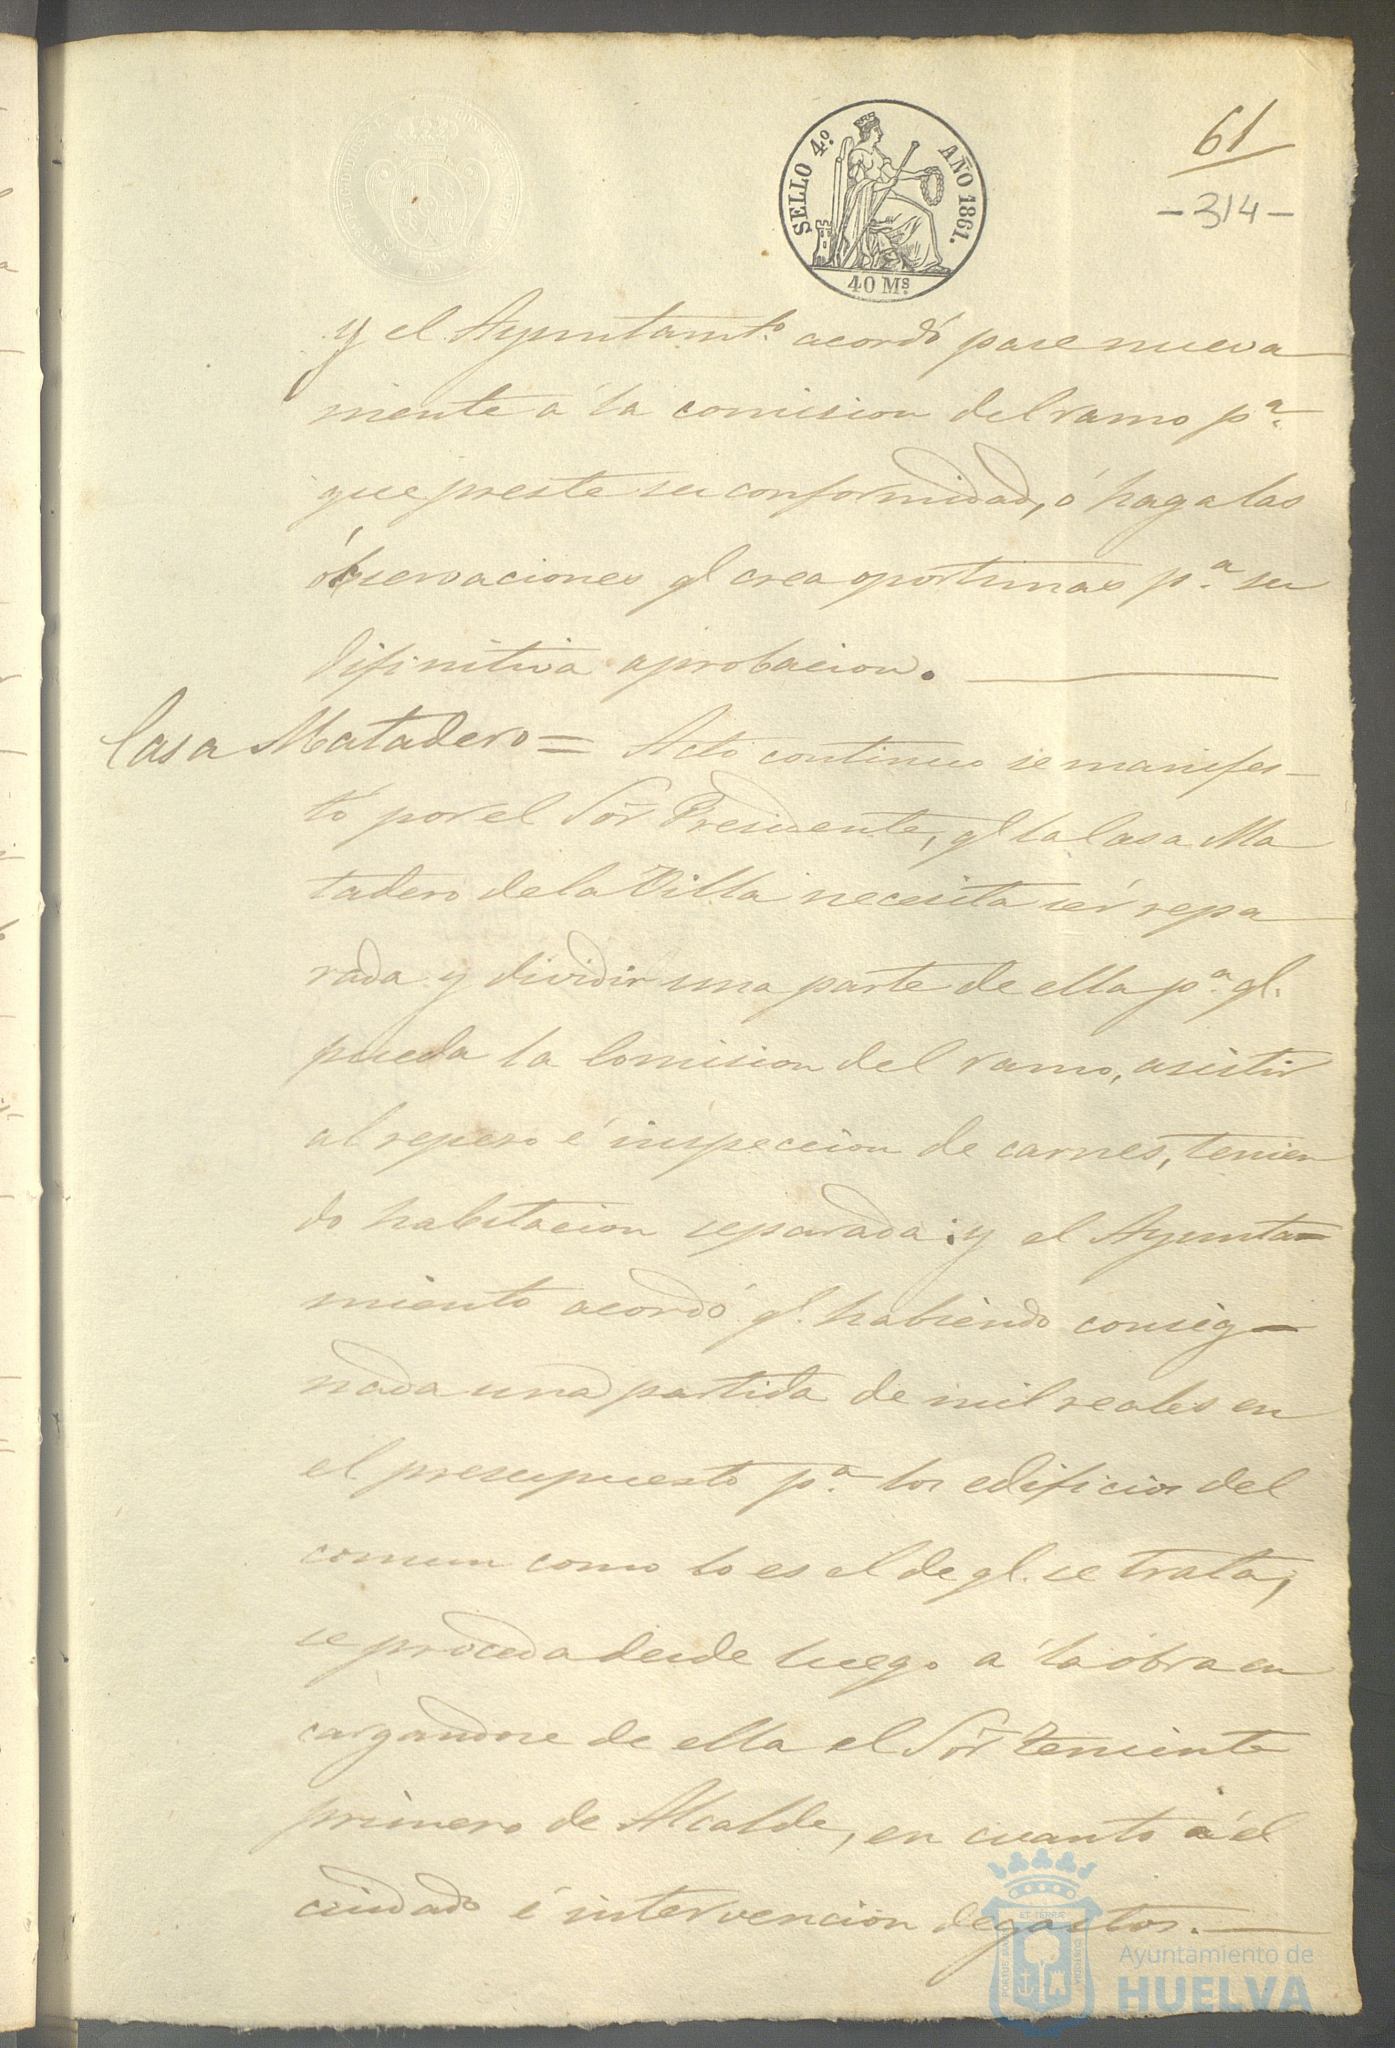 SELLO 4.º AÑO 1861.
40 Ms
61
-314-
y el Ayuntamt.º acordó pase nueva
mente á la comision del ramo p.ª
que preste su conformidad, ó haga las
observaciones q.l crea oportunas p.ª su
difinitiva aprobacion.
Casa Matadero = Acto continuo se manifes-
tó por el Sõr Presidente, q.l la Casa Ma
tadero de la Villa necesita sér repa
rada y dividir una parte de ella p.ª q.l
pueda la Comision del ramo, asistir
al repeso é inspeccion de carnes, tenien
do habitacion separada: y el Ayunta=
miento acordó q.l habiendo consig-
nada una partida de mil reales en
el presupuesto p.ª los edificios del
comun como lo es el de q.l se trata,
se proceda desde luego á la óbra en
cargandose de ella el Sõr Teniente
primero de Alcalde, en cuanto á él
cuidado é intervencion de gastos.
PORTUS MARIS ET TERRÆ CUSTODIA
Ayuntamiento de
HUELVA